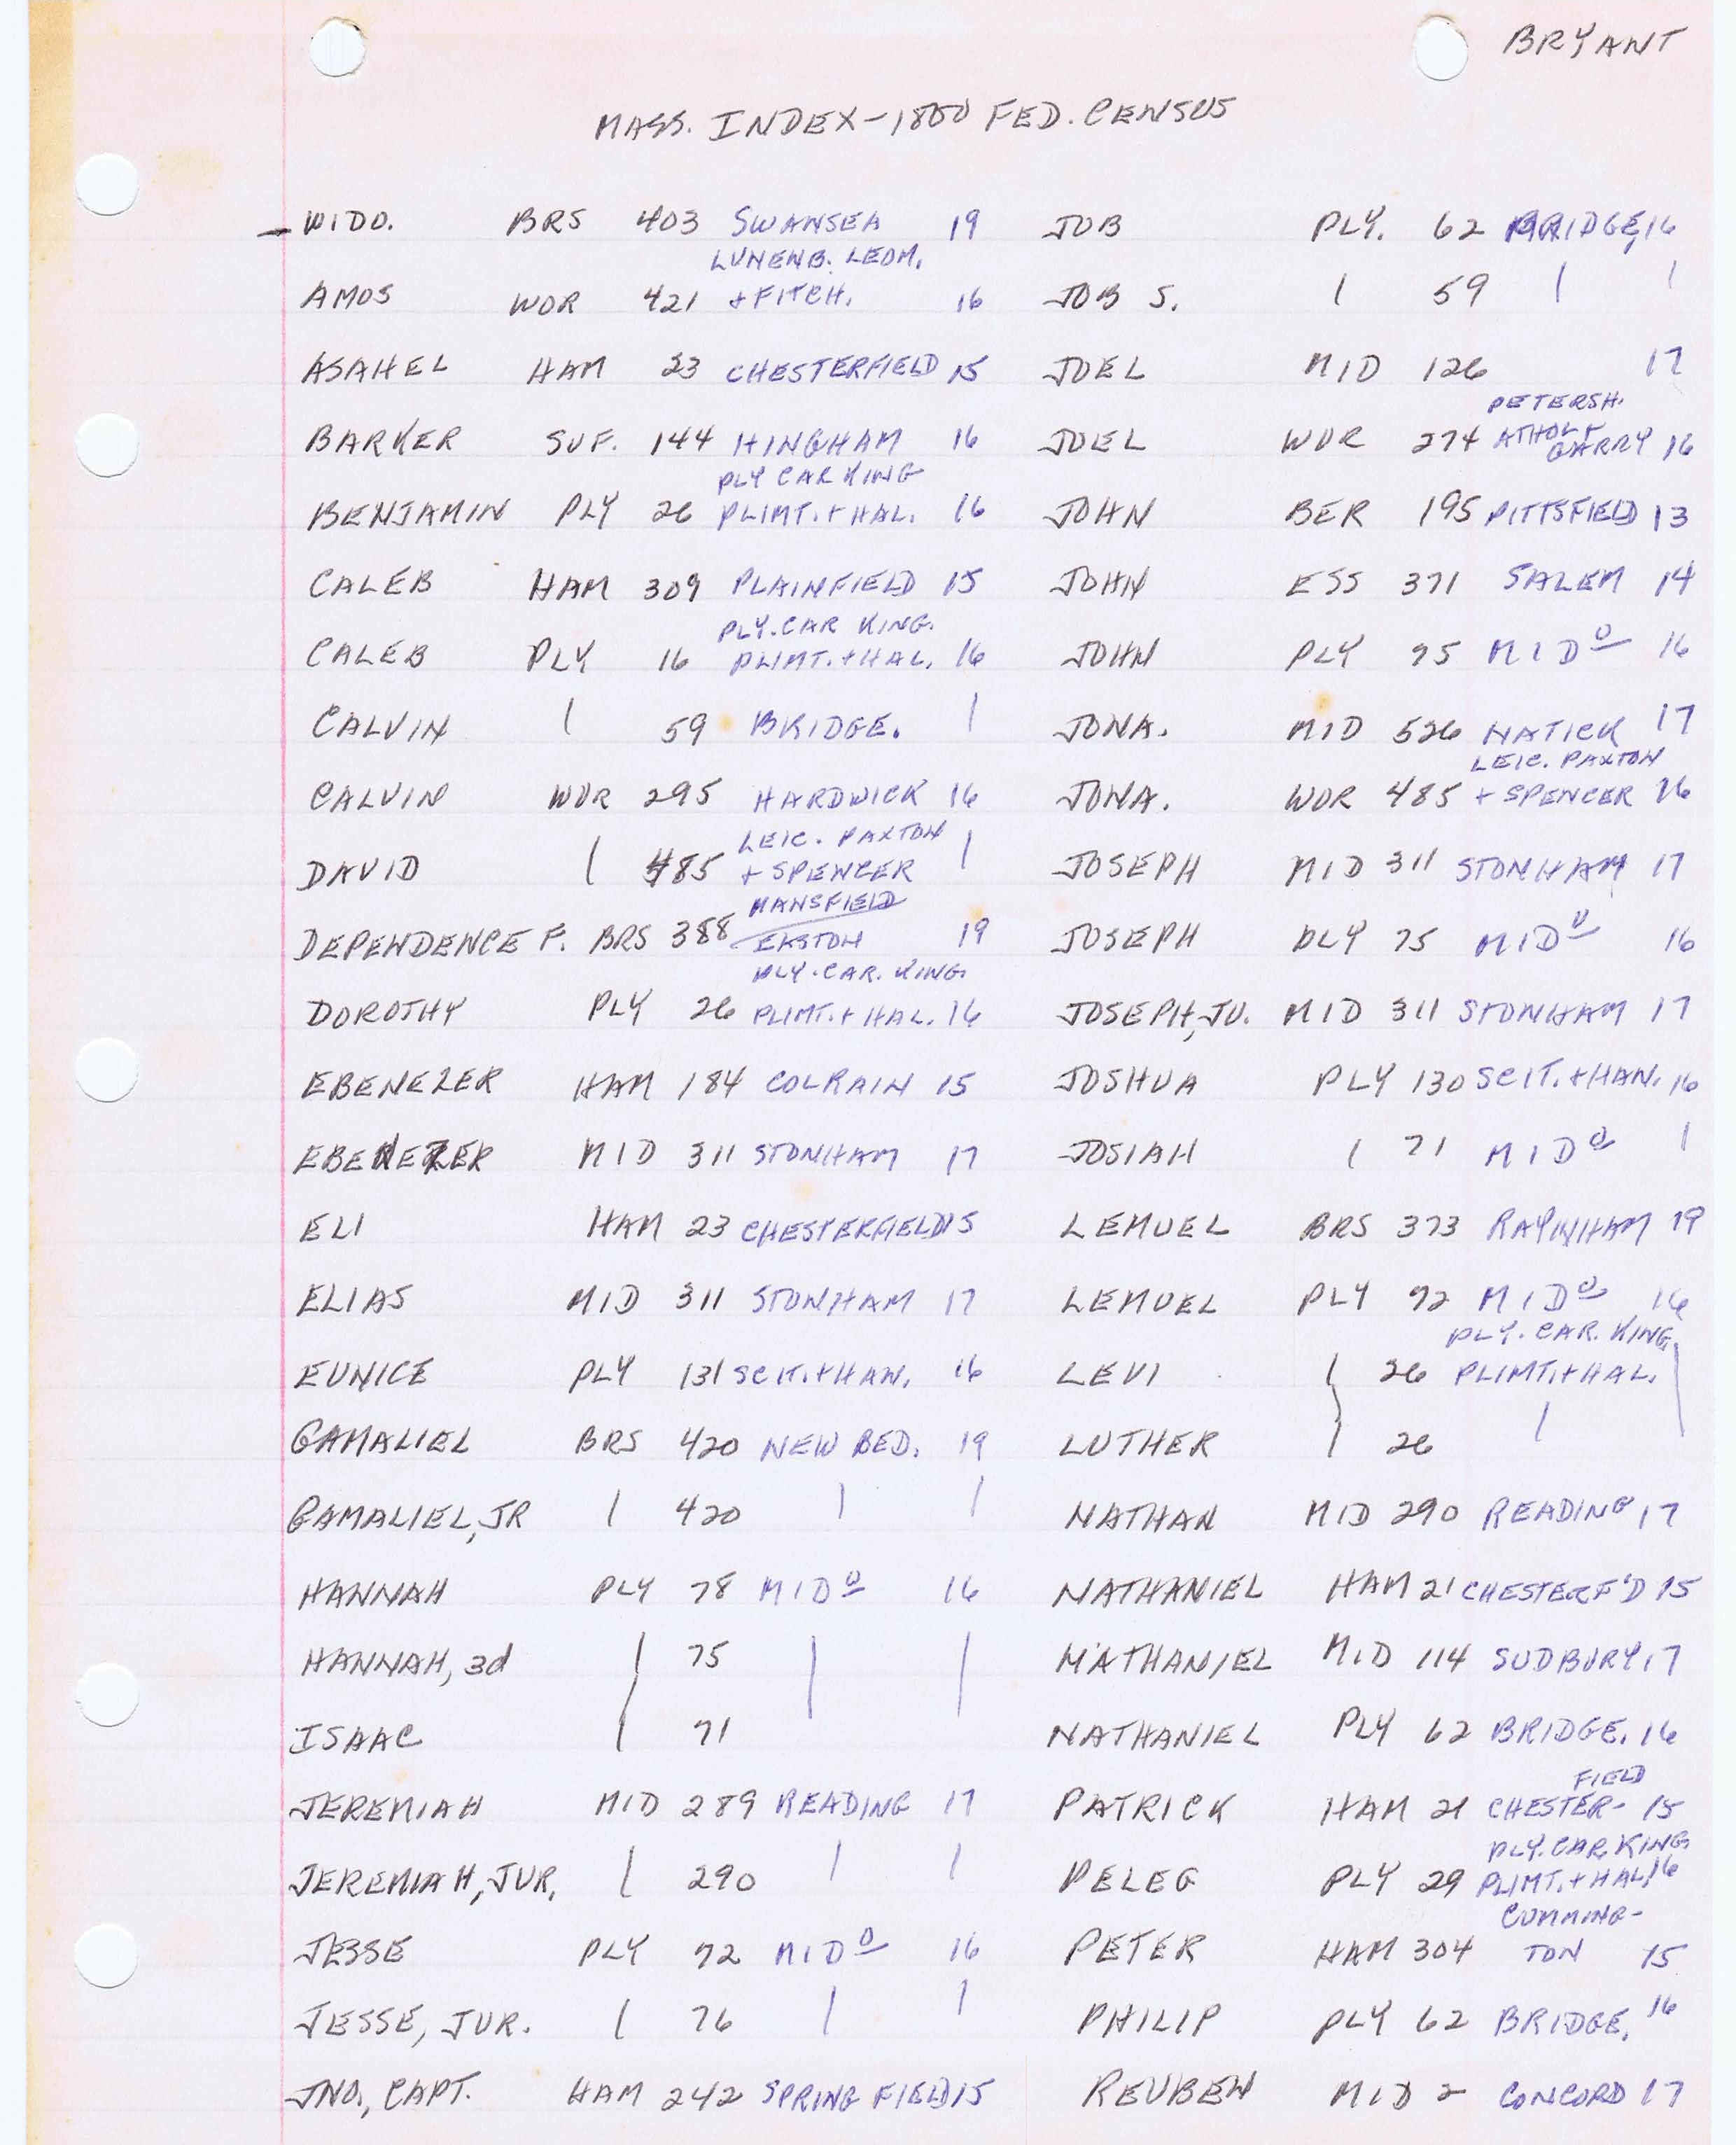 BRYANT
MASS. INDEX-1800 FED. CENSUS
WIDO. BRS 403 SWANSEA 19
LUNENB. LEOM.
AMOS WOR 421 + FITCH. 16
ASAHEL HAM 23 CHESTERFIELD 15
BARKER SUF. 144 HINGHAM 16
PLY CAR KING
BENJAMIN PLY 26 PLIMT. + HAL. 16
CALEB HAM 309 PLAINFIELD 15
PLY. CAR KING.
CALEB PLY 16 PLIMT. + HAL. 16
CALVIN | 59 BRIDGE. |
CALVIN WOR 295 HARDWICK 16
LEIC. PAXTON
DAVID | 485 + SPENCER |
MANSFIELD
DEPENDENCE F. BRS 388 EASTON 19
PLY. CAR. KING.
DOROTHY PLY 26 PLIMT. + HAL. 16
EBENEZER HAM 184 COLRAIN 15
EBENEZER MID 311 STONHAM 17
ELI HAM 23 CHESTERFIELD 15
ELIAS MID 311 STONHAM 17
EUNICE PLY 131 SCIT. + HAN. 16
GAMALIEL BRS 420 NEW BED. 19
GAMALIEL, JR | 420 | |
HANNAH PLY 78 MIDO 16
HANNAH, 3d | 75 | |
ISAAC | 71
JEREMIAH MID 289 READING 17
JEREMIAH, JUR. | 290 | |
JESSE PLY 72 MIDO 16
JESSE, JUR. | 76 | |
JNO., CAPT. HAM 242 SPRING FIELD 15
JOB PLY. 62 BRIDGE, 16
JOB S. | 59 | |
JOEL MID 126 17
PETERSH.
ATHOL +
JOEL WOR 274 GARRY 16
JOHN BER 195 PITTSFIELD 13
JOHN ESS 371 SALEM 14
JOHN PLY 75 MIDO 16
JONA. MID 526 NATICK 17
LEIC. PAXTON
JONA. WOR 485 + SPENCER 16
JOSEPH MID 311 STONHAM 17
JOSEPH PLY 75 MIDO 16
JOSEPH, JU. MID 311 STONHAM 17
JOSHUA PLY 130 SCIT. + HAN. 16
JOSIAH | 71 MIDO |
LEMUEL BRS 373 RAYNHAM 19
LEMUEL PLY 72 MIDO 16
PLY. CAR. KING.
LEVI | 26 PLIMT. + HAL. |
LUTHER | 26 |
NATHAN MID 290 READING 17
NATHANIEL HAM 21 CHESTERF'D 15
NATHANIEL MID 114 SUDBURY 17
NATHANIEL PLY 62 BRIDGE. 16
FIELD
PATRICK HAM 21 CHESTER- 15
PLY. CAR. KING
PELEG PLY 29 PLIMT. + HAL. 16
CUMMING-
PETER HAM 304 TON 15
PHILIP PLY 62 BRIDGE. 16
REUBEN MID 2 CONCORD 17